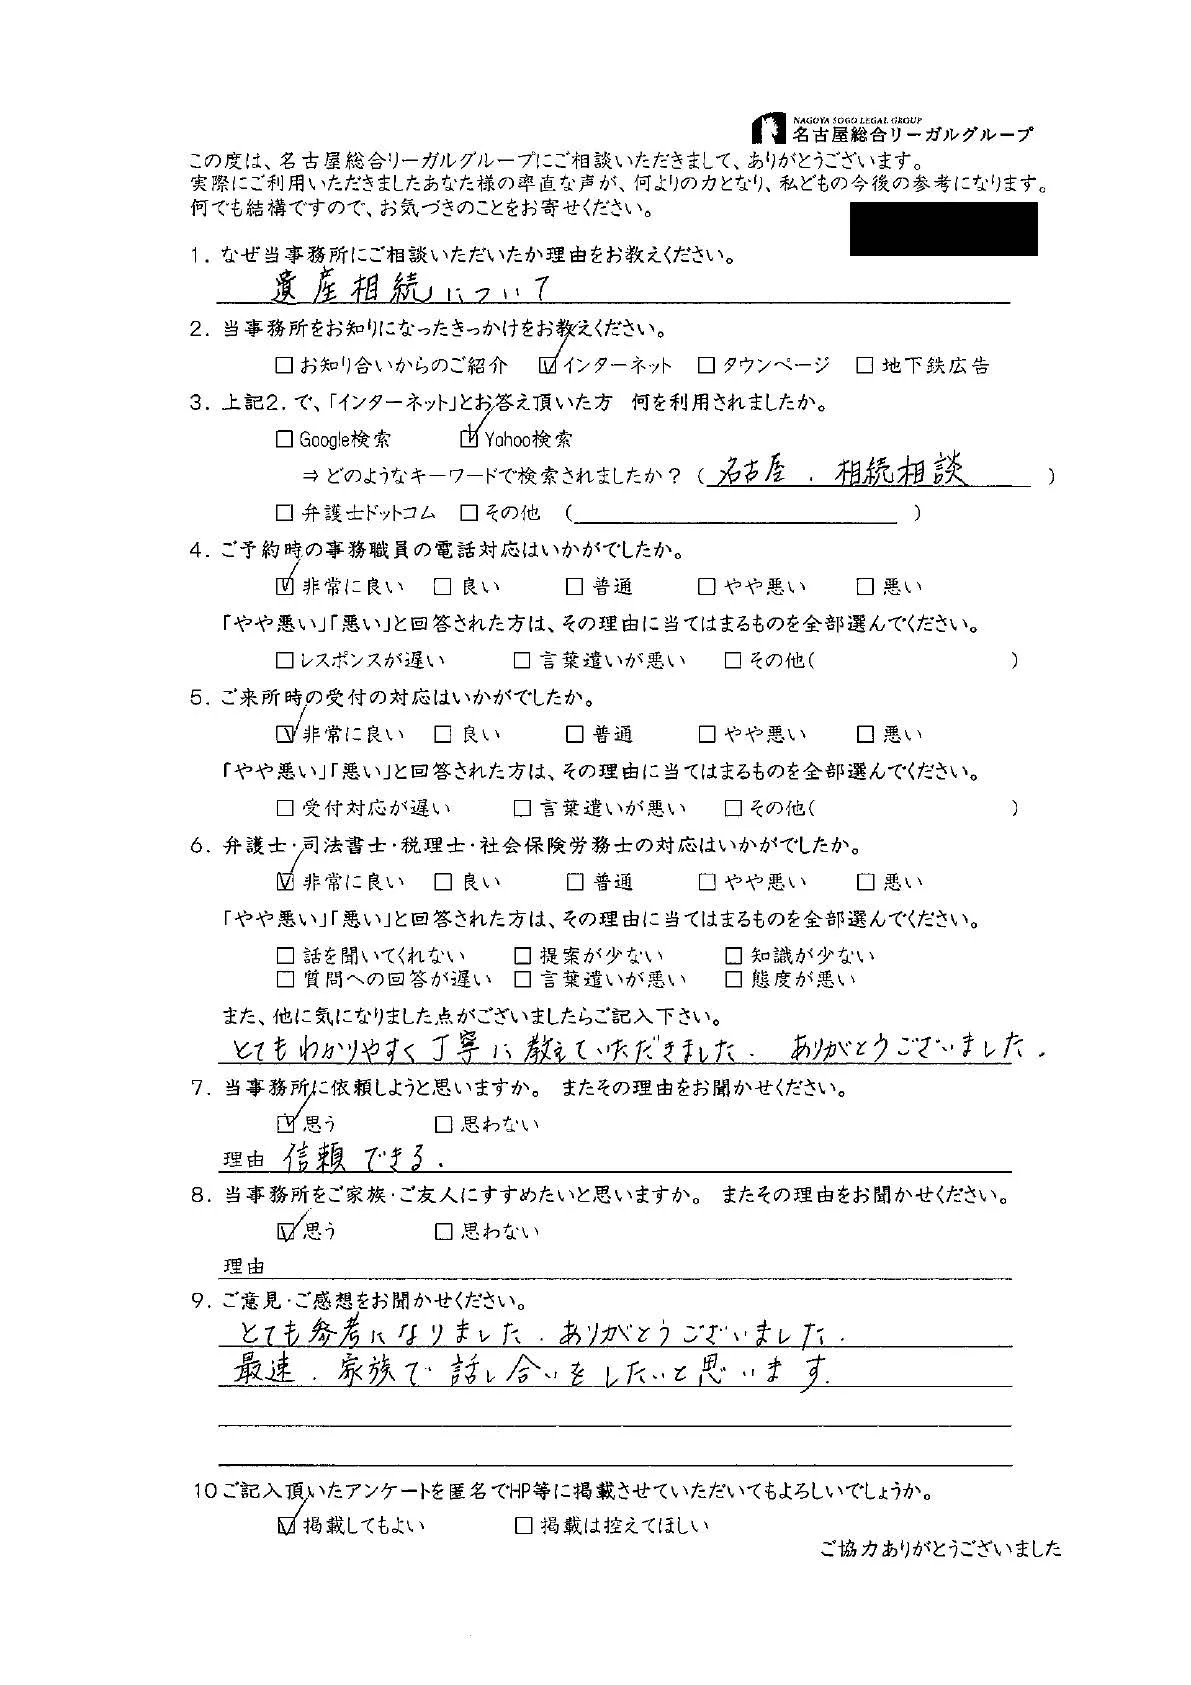 NAGOYA SOGO LEGAL GROUP
名古屋総合リーガルグループ
この度は、名古屋総合リーガルグループにご相談いただきまして、ありがとうございます。
実際にご利用いただきましたあなた様の率直な声が、何よりの力となり、私どもの今後の参考になります。
何でも結構ですので、お気づきのことをお寄せください。
1. なぜ当事務所にご相談いただいたか理由をお教えください。
遺産相続について
2. 当事務所をお知りになったきっかけをお教えください。
□お知り合いからのご紹介 ☑インターネット □タウンページ □地下鉄広告
3. 上記2. で、「インターネット」とお答え頂いた方 何を利用されましたか。
□Google検索 ☑Yahoo検索
⇒どのようなキーワードで検索されましたか？（名古屋. 相続相談）
□弁護士ドットコム □その他 （ ）
4. ご予約時の事務職員の電話対応はいかがでしたか。
☑非常に良い □良い □普通 □やや悪い □悪い
「やや悪い」「悪い」と回答された方は、その理由に当てはまるものを全部選んでください。
□レスポンスが遅い □言葉遣いが悪い □その他( )
5. ご来所時の受付の対応はいかがでしたか。
☑非常に良い □良い □普通 □やや悪い □悪い
「やや悪い」「悪い」と回答された方は、その理由に当てはまるものを全部選んでください。
□受付対応が遅い □言葉遣いが悪い □その他( )
6. 弁護士・司法書士・税理士・社会保険労務士の対応はいかがでしたか。
☑非常に良い □良い □普通 □やや悪い □悪い
「やや悪い」「悪い」と回答された方は、その理由に当てはまるものを全部選んでください。
□話を聞いてくれない □提案が少ない □知識が少ない
□質問への回答が遅い □言葉遣いが悪い □態度が悪い
また、他に気になりました点がございましたらご記入下さい。
とてもわかりやすく丁寧に教えていただきました. ありがとうございました.
7. 当事務所に依頼しようと思いますか。 またその理由をお聞かせください。
☑思う □思わない
理由 信頼できる.
8. 当事務所をご家族・ご友人にすすめたいと思いますか。 またその理由をお聞かせください。
☑思う □思わない
理由
9. ご意見・ご感想をお聞かせください。
とても参考になりました. ありがとうございました.
最速. 家族で話し合いをしたいと思います.
10ご記入頂いたアンケートを匿名でHP等に掲載させていただいてもよろしいでしょうか。
☑掲載してもよい □掲載は控えてほしい
ご協力ありがとうございました